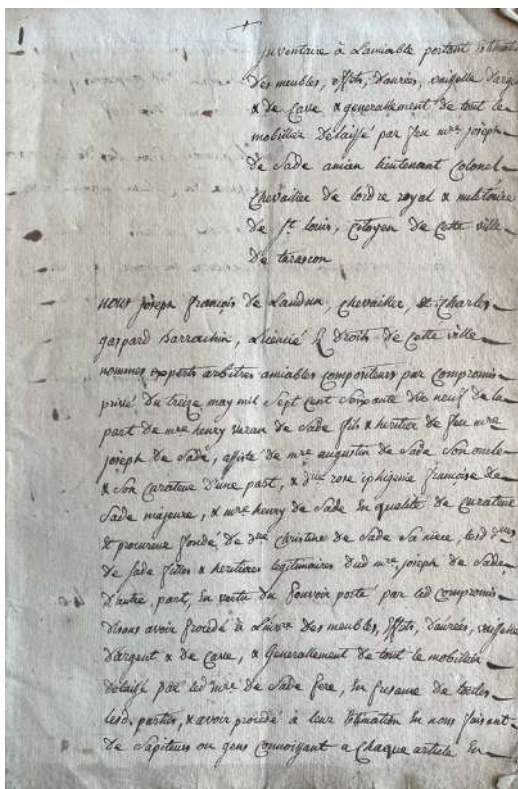 1
Inventaire à Lamiable portant Estimati
Des meubles, effets, Danrées, vaisselle d'arge
& de Cave & generallement de tout le
mobillier Délaissé par feu mre joseph
de Sade ancien lieutenant Colonel
Chevallier de lordre royal & militaire
de St louis, Citoyen de Cette ville
de tarascon
nous joseph françois de Laudun, Chevallier, & Charles
gaspard Barrachin, Licencié Ez Droits de Cette ville
nommes experts arbitres amiables compositeurs par compromis
privé Du treize may mil Sept Cent Soixante dix neuf de la
part de mre henry veran de Sade fils & heritier de feu mre
joseph de Sade, assisté de mre augustin de Sade Son oncle
& Son Curateur D'une part, & dlle rose iphigenie françoise de
Sade majeure, & mre henry de Sade En qualité de Curateur
& procureur fondé de dlle Christine de Sade Sa niece, lesd dlles
de Sade filles & heritieres legitimaires dud mre joseph de Sade
D'autre part, En vertu du pouvoir porté par led Compromis
Disons avoir procedé à L'invre Des meubles, Effets, Danrées, vaisselle
D'argent & de Cave, & Generallement de tout le mobillier
Délaissé par led mre de Sade pere, En presance de toutes
lesd. parties, & avoir procédé à leur Estimation En nous faisant
De Sapiteurs ou gens Connoissant a Chaque article En